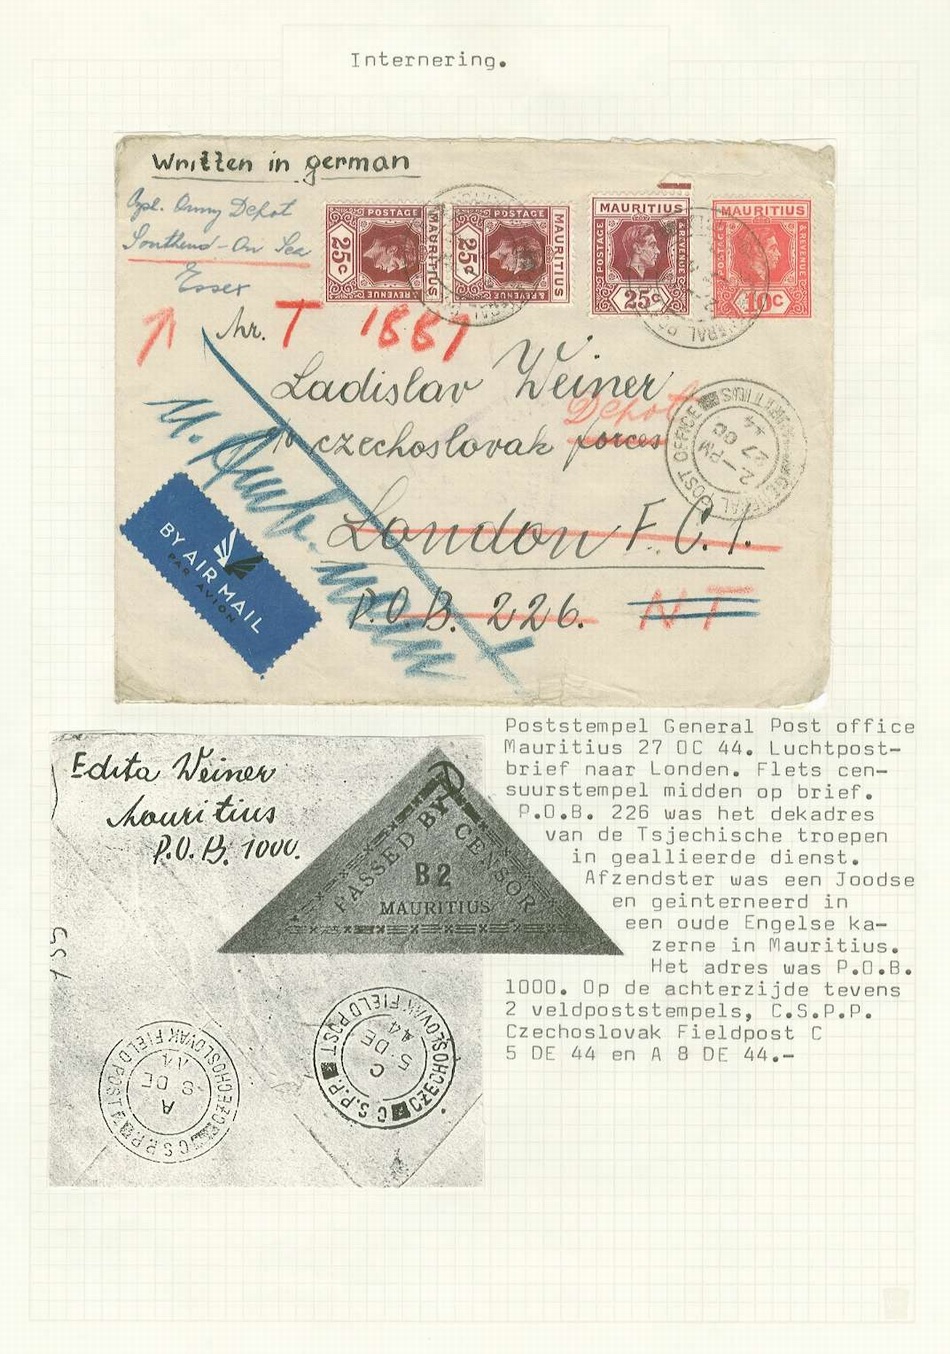 Internering.
Written in german
Cpl. Army Depot
Southend-On Sea
Essex
POSTAGE
MAURITIUS
25c
& REVENUE
POSTAGE
MAURITIUS
25c
& REVENUE
MAURITIUS
POSTAGE
& REVENUE
25c
MAURITIUS
POSTAGE
& REVENUE
10c
Nr. T 1887
Ladislav Weiner
Depot
czechoslovak forces
London F. C. 1.
P.O.B. 226. NT
GENERAL POST OFFICE
MAURITIUS
2 - PM
27 OC
44
BY AIR MAIL
PAR AVION
Edita Weiner
Mauritius
P.O.B. 1000.
PASSED BY CENSOR
B2
MAURITIUS
CZECHOSLOVAK FIELD POST
A
8 DE
44
C.S.P.P.
CZECHOSLOVAK FIELD POST
C
5 DE
44
C.S.P.P.
Poststempel General Post office
Mauritius 27 OC 44. Luchtpost-
brief naar Londen. Flets cen-
suurstempel midden op brief.
P.O.B. 226 was het dekadres
van de Tsjechische troepen
in geallieerde dienst.
Afzendster was een Joodse
en geinterneerd in
een oude Engelse ka-
zerne in Mauritius.
Het adres was P.O.B.
1000. Op de achterzijde tevens
2 veldpoststempels, C.S.P.P.
Czechoslovak Fieldpost C
5 DE 44 en A 8 DE 44.-